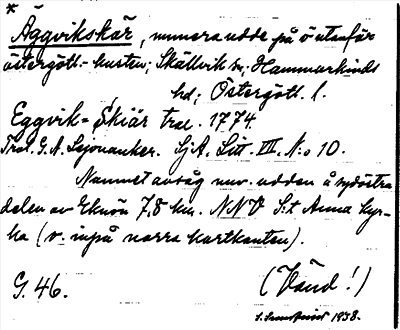 *
Äggvikskär, numera udde på ö utanför
östergötl.-kusten; Skällvik sn; Hammarkinds
hd; Östergötl. l.
Eggvik-Skiär tral. 1774.
Tral. G. A. Sejonanker. SjA. Litt. III. N:o 10.
Namnet avsåg nuv. udden å sydöstra
delen av Eknön 7,8 km. NNV S:t Anna kyr-
ka (v. inpå norra kartkanten).
G. 46.
(Vänd!)
1938.